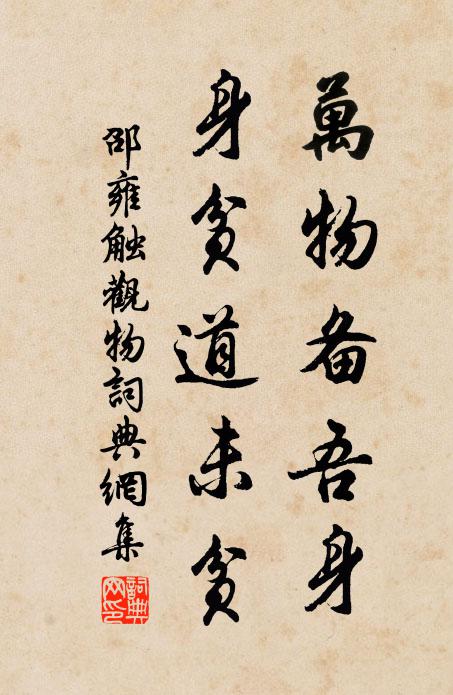 萬物备吾身
身贫道未贫
邵雍触觀物詞典網集
詞典网印